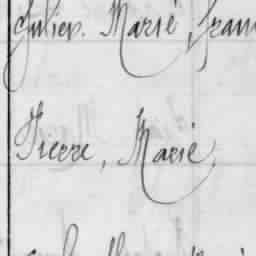 Julien. Marié, fran
Pierre, Marié,